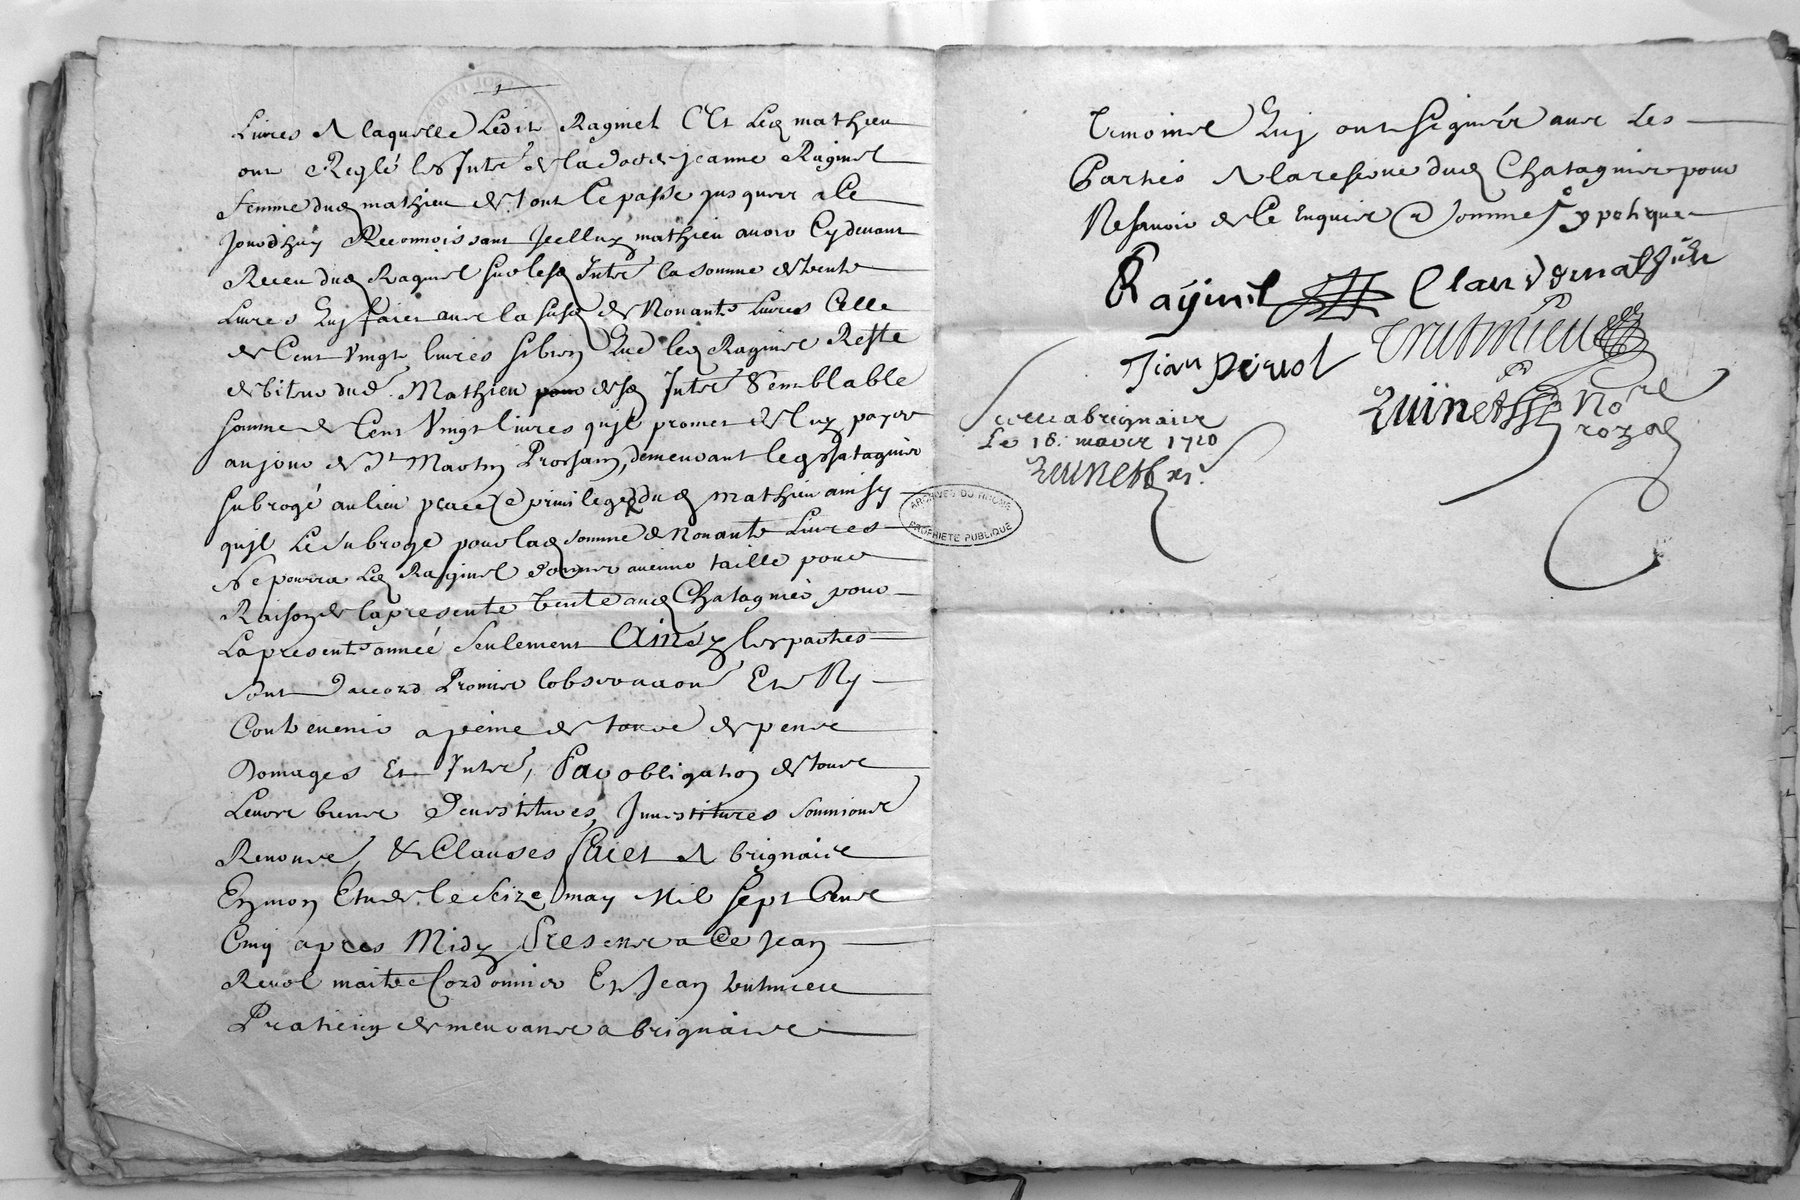 Livres A laquelle Ledit Raginel Et Led mathieu
ont Reglé les Inter de la dotte jeanne Raginel
femme dud mathieu de tout le passe jusques a Ce
jourdhuy Reconnoissant Icelluy mathieu avoir Cy devant
Receu dud Raginel sur lesd Inter la somme de trente
Livres Quy faict avec la susd de Nonante Livres Celle
de Cent Vingt livres sibien Que led Raginel Reste
debiteur dud Mathieu desd Inter Semblable
somme de Cent Vingt livres quil promet de luy payer
au jour de St Martin Prochain, demeurant led Chatagnier
subrogé au lieu place Et privileges dud mathieu ainsy
quil Le subroge pour lad somme de Nonante Livres
Ne pourra Led Raginel donner aucune taille pour
Raison de la presente Vente aud Chatagnier pour
La presente année seulement Ainsy les parties
sont daccord Promis lobservation Et Ny
Contrevenir a peine de tous despens
Domages Et Inter, Par obligation de tous
Leurs biens devestitures Investitures soumions
Renons, & Clauses faict A brignais
En mon Etude le seize may Mil sept Cens
Cinq apres Midy Presens a Ce Jean
Revol maitre Cordonnier Et Jean
Praticien demeurans a brignais
temoins Quy ont signéz avec Les
Parties A la reserve dud Chatagnier pour
Ne savoir de Ce Enquis Et somme
Rayinel Claude mathieu
Jean Revol
Quinet No.re
royal
a brignais
Le 16. 1710
Quinet
ARCHIVES DU RHONE
PROPRIETE PUBLIQUE